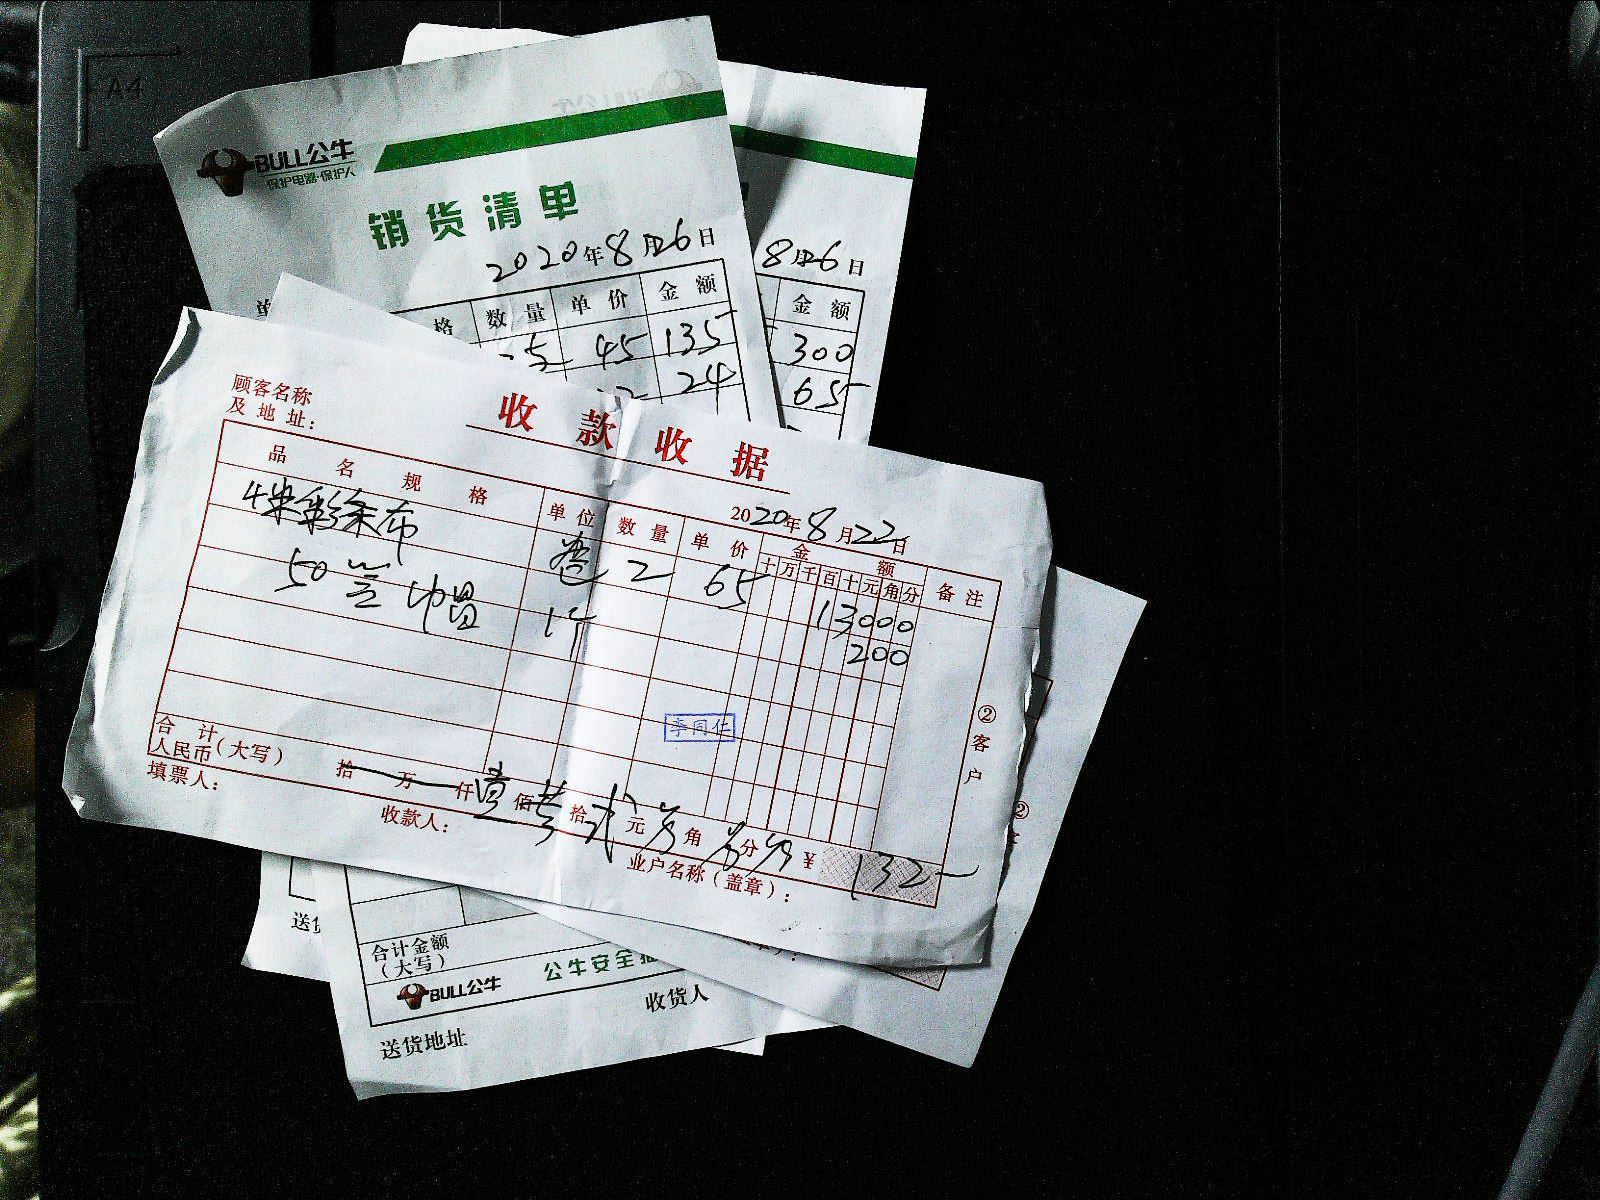 A4
BULL公牛
保护电器·保护人
销货清单
2020年8月26日
8月26日
单
格 数量 单价 金额
金额
5 45 135
300
24
65
顾客名称
及地址：
收款收据
2020年8月22日
品名规格 单位 数量 单价 金额 备注
十万千百十元角分
4米彩条布 卷 2 65 13000
50 帽 1个 200
李同仁
②客户
②
合计
人民币（大写） 拾 万 仟壹佰叁拾贰元 角 分 ¥ 132
填票人：
收款人：
业户名称（盖章）：
送货
合计金额
（大写）
BULL公牛
公牛安全插
收货人
送货地址